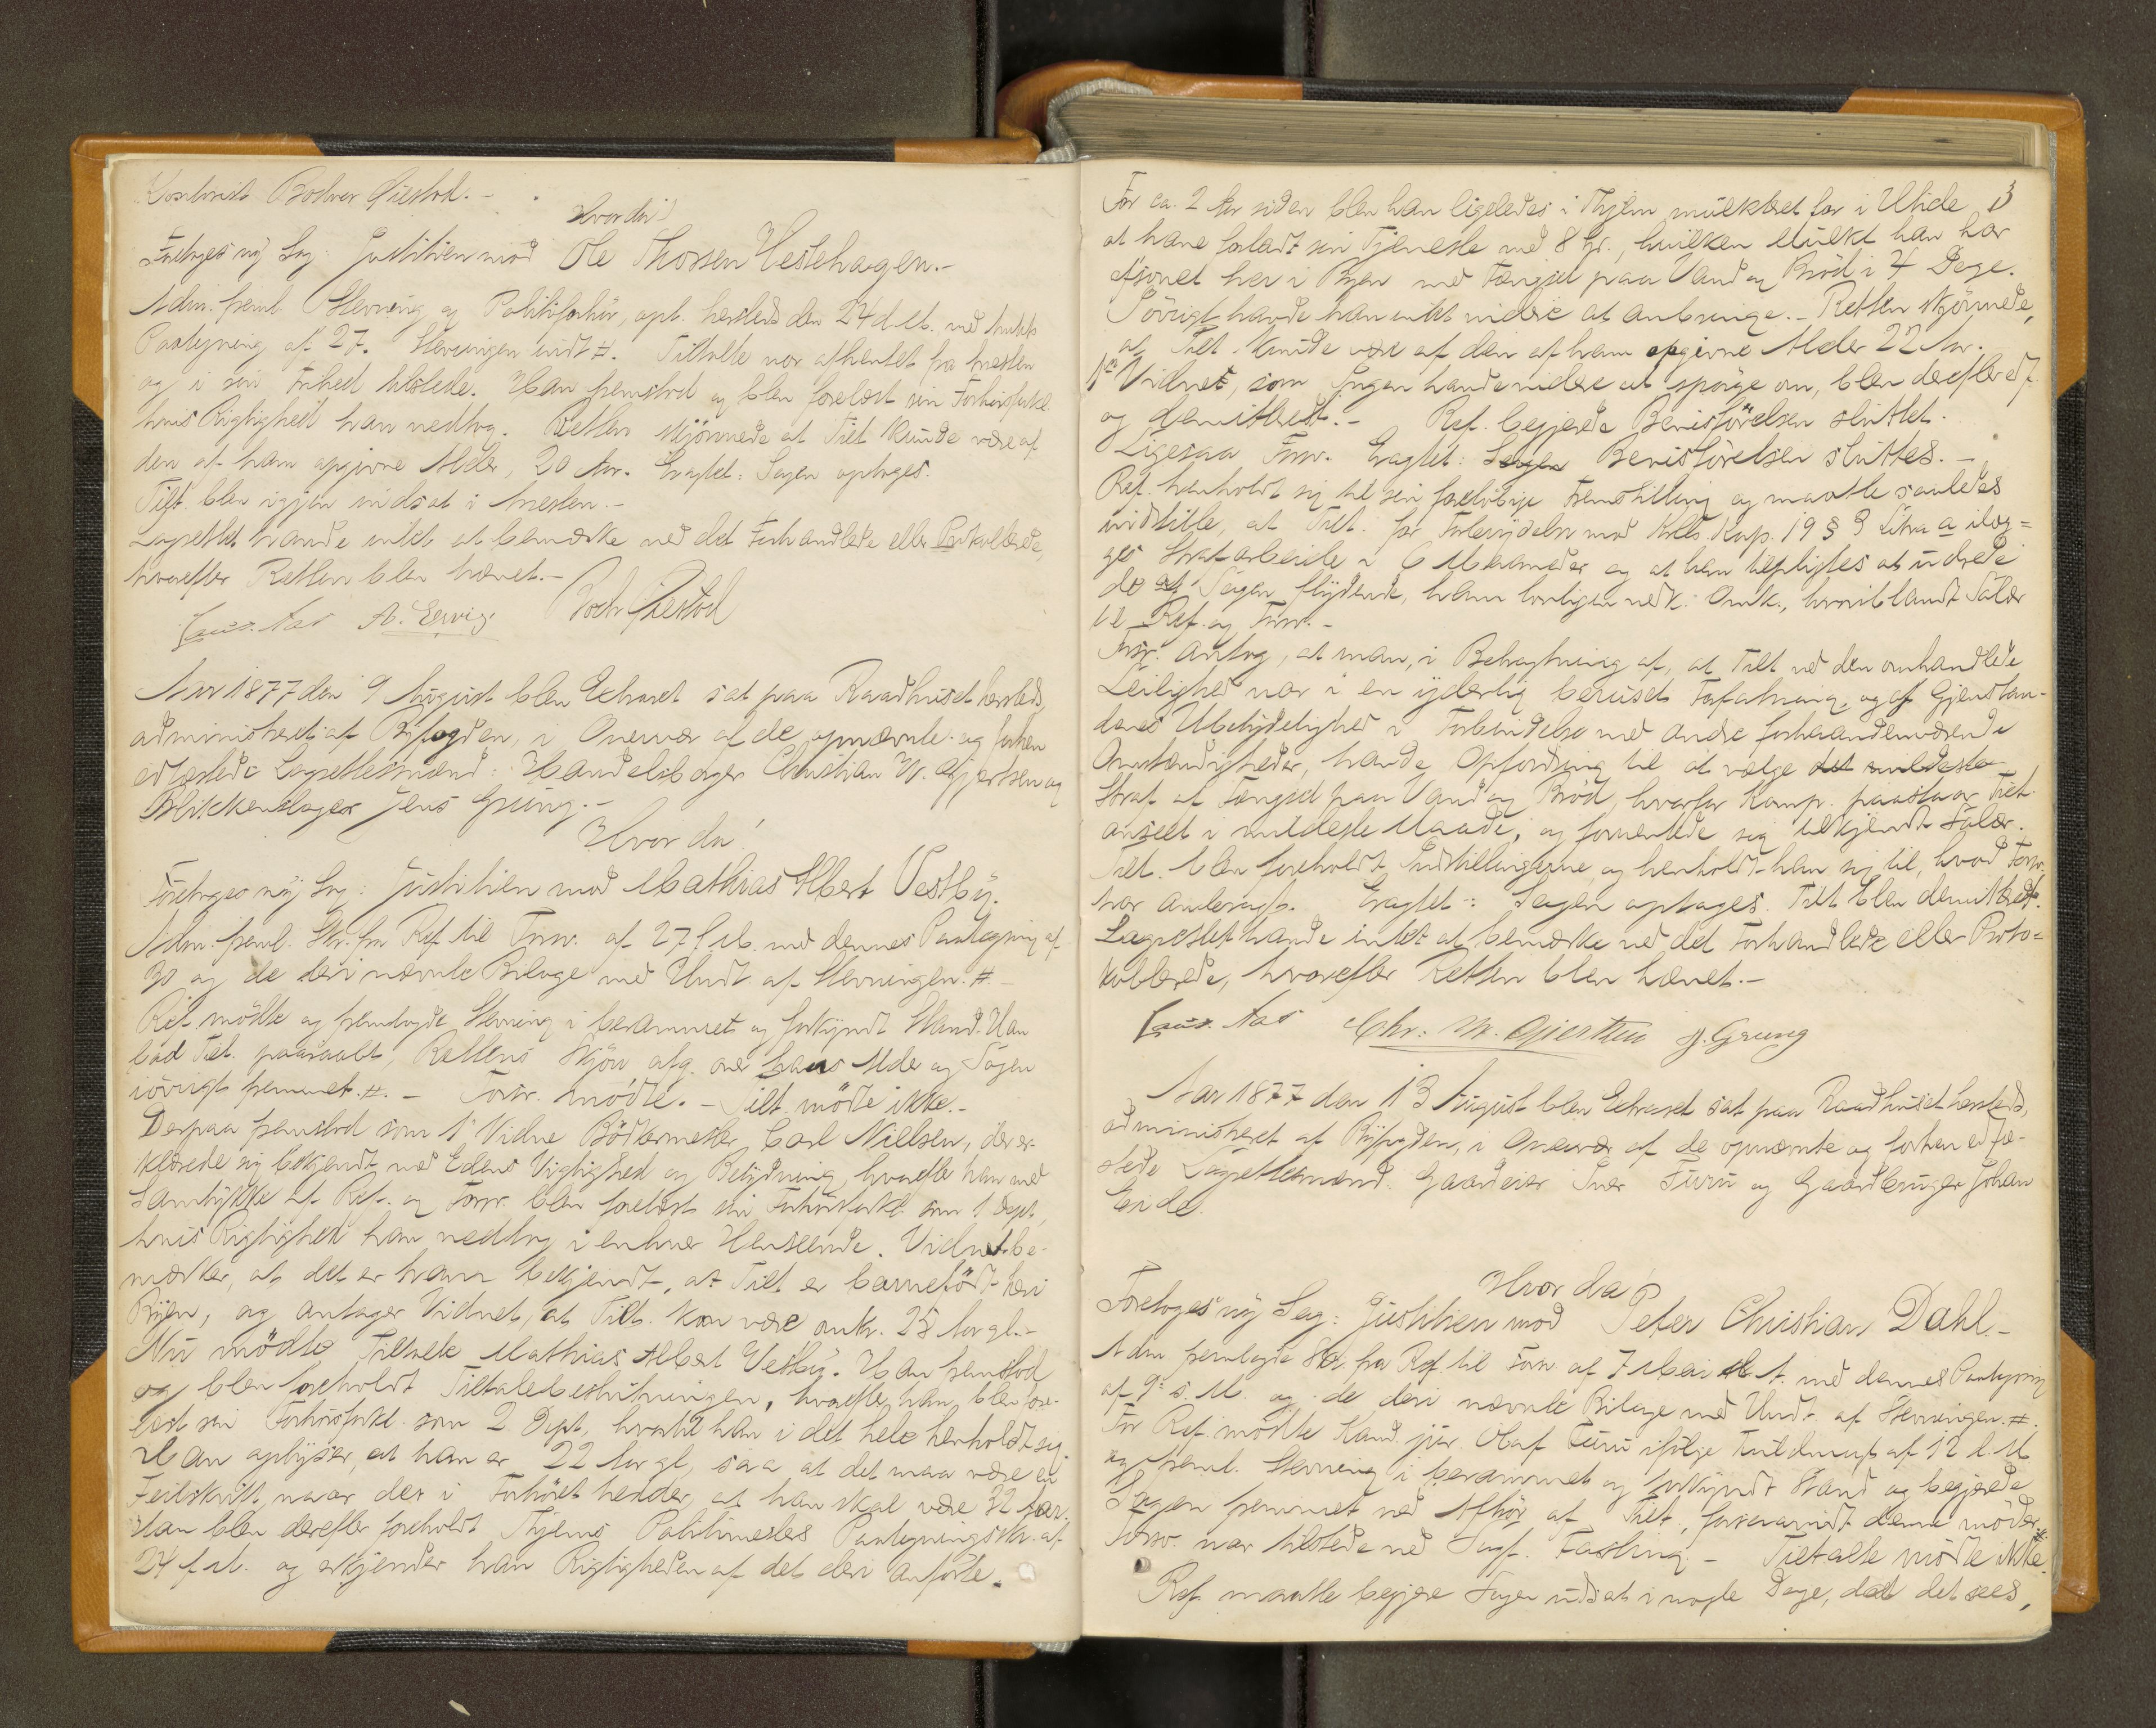 Bodver Øiestad. -
Hvorda!
Foretoges ny Sag: Justitien mod Ole Thorsen Hestehagen. -
Adm. freml. Stevning og Politiforhör, opt. hersteds den 24 d. M. med
Paategning af 27. Stevningen indt #. Tiltalte var afhentet fra Arresten
og i sin Frihed tilstede. Han fremstod og blev forelæst sin Forhörsforkl.
hvis Rigtighed han vedtog. Retten skjønnede at Tilt. kunde være af
den af ham opgivne Alder, 20 Aar. Eragtet: Sagen optages.
Tilt. blev igjen indsat i Arresten. -
Lagrettet havde intet at bemærke ved det Forhandlede eller Protokollerede,
hvorefter Retten blev hævet. -
A. Ervig Bodv Øiestad
Aar 1877 den 9 August blev Extraret sat paa Raadhuset hersteds,
administreret af Byfogden, i Overvær af de opnævnte og forhen
edfæstede Lagrettesmænd: Handelsborger Christian W. Gjertsen og
Blikkenslager Jens Grung. -
Hvor da!
Foretoges ny Sag: Justitien mod Mathias Albert Vestby.
Adm. freml. Skr. fra Ref. til Forsv. af 27 f. M. med dennes Paategning af
30 og de deri nævnte Bilage med Undt. af Stevningen. # -
Ref. mödte og fremlagde Stevning i berammet og forkyndt Stand. Han
bad Tilt. paaraabt, Rettens Skjön afg. over hans Alder og Sagen
iövrigt fremmet. #. - Forsv. mödte. - Tilt. mödte ikke. -
Derpaa fremstod som 1 Vidne Bödkermester Carl Nielsen, der er-
klærede sig bekjendt med Edens Vigtighed og Betydning, hvorefter han med
Samtykke af Ref. og Forsv. blev forelæst sin Forhörsforkl. som 1 Dept,
hvis Rigtighed han vedtog i enhver Henseende. Vidnet be-
mærker, at det er ham bekjendt, at Tilt. er barnefödt heri
Byen, og antager Vidnet, at Tilt. kan være omkr. 25 Aar gl. -
Nu mödte Tiltalte Mathias Albert Vestby. Han fremstod
og blev foreholdt Tiltalebeslutningen, hvorefter han blev fore-
læst sin Forhörsforkl. som 2 Dept, hvortil han i det hele henholdt sig.
Han oplyser, at han er 22 Aar gl, saa at det maa være en
Feilskrift, naar der i Forhöret hedder, at han skal være 32 Aar.
Han blev derefter foreholdt Politimesters Paategningsskr. af
24 f. M. og erkjender han Rigtigheden af det deri Anförte.
3
For ca. 2 Aar siden blev han ligeledes i mulkteret for i Utide
at have forladt sin Tjeneste med 8 Kr., hvilken Mulkt han har
afsonet her i Byen med Fængsel paa Vand og Bröd i 4 Dage.
Iövrigt havde han intet videre at anbringe. - Retten skjönnede,
at Tilt. kunde være af den af ham opgivne Alder 22 Aar.
1ste Vidnet, som Ingen havde videre at spörge om, blev derefter edf.
og demitteret. - Ref. begjerede Bevisförelsen sluttet.
Ligesaa Forsv. Eragtet: Bevisförelsen sluttes. -
Ref. henholdt sig til sin foreløbige Fremstilling og maatte saaledes
indstille, at Tilt. for Forbrydelse mod Krls. Kap. 19 § 3 Litra a ilæg=
ges Strafarbeide i 6 Maaneder og at han tilpligtes at udrede
de af Sagen flydende, ham lovligen vedk. Omk., hvoriblandt Salær
til Ref. og Forsv. -
Forsv. antog, at man, i Betragtning af, at Tilt. ved den omhandlede
Leilighed var i en yderlig beruset Forfatning, og af Gjenstan-
denes Ubetydelighed i Forbindelse med andre forhaandenværende
Omstændigheder, havde Opfordring til at vælge
Straf af Fængsel paa Vand og Bröd, hvorfor Komp. paastaar Tilt.
anseet i mildeste Maade, og forventede sig tilkjendt Salær.
Tilt. blev foreholdt Indstillingerne og henholdt han sig til, hvad Forsv.
har anbragt. Eragtet: Sagen optages. Tilt. blev demitteret.
Lagrettet havde intet at bemærke ved det Forhandlede eller Proto=
kollerede, hvorefter Retten blev hævet. -
Chr: W. Gjertsen J. Grung
Aar 1877 den 13 August blev Extraret sat paa Raadhuset hersteds,
administreret af Byfogden, i Overvær af de opnævnte og forhen edfæ-
stede Lagrettesmænd. Gaardeier Iver Furu og Gaardbruger Johan
Eide.
Hvor da!
Foretoges ny Sag: Justitien mod Peter Christian Dahl. -
Adm fremlagde Skr. fra Ref. til Forsv. af 7 Mai d. A. med dennes Paategning
af 9. s. M. og de deri nævnte Bilage med Undt. af Stevningen. #.
For Ref. mödte Kand. jur. Olaf Furu ifölge Fuldmagt af 12 d. M.
og freml. Stevning i berammet og forkyndt Stand og begjerede
Sagen fremmet ved Afhör af Tilt., forsaavidt denne möder. #.
Forsv. var tilstede ved Sagf. Fasting. - Tiltalte mödte ikke.
Ref. maatte begjere Sagen udsat i nogle Dage, da det sees,